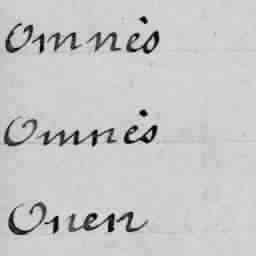 Omnes
Omnes
Onen